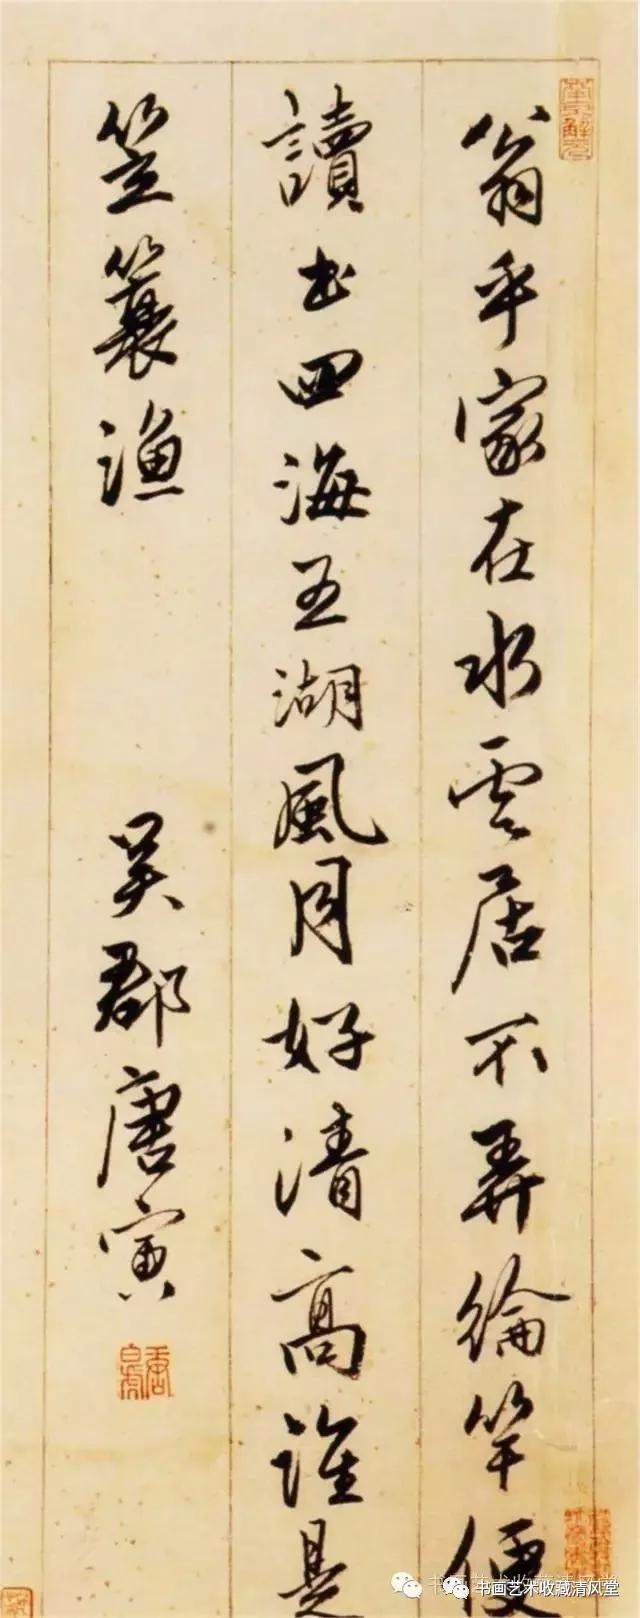 翁乎家在水雲居不弄綸竿便
讀書四海五湖風月好清高誰是
笠簑漁
吳郡唐寅
書画艺术收藏清风堂